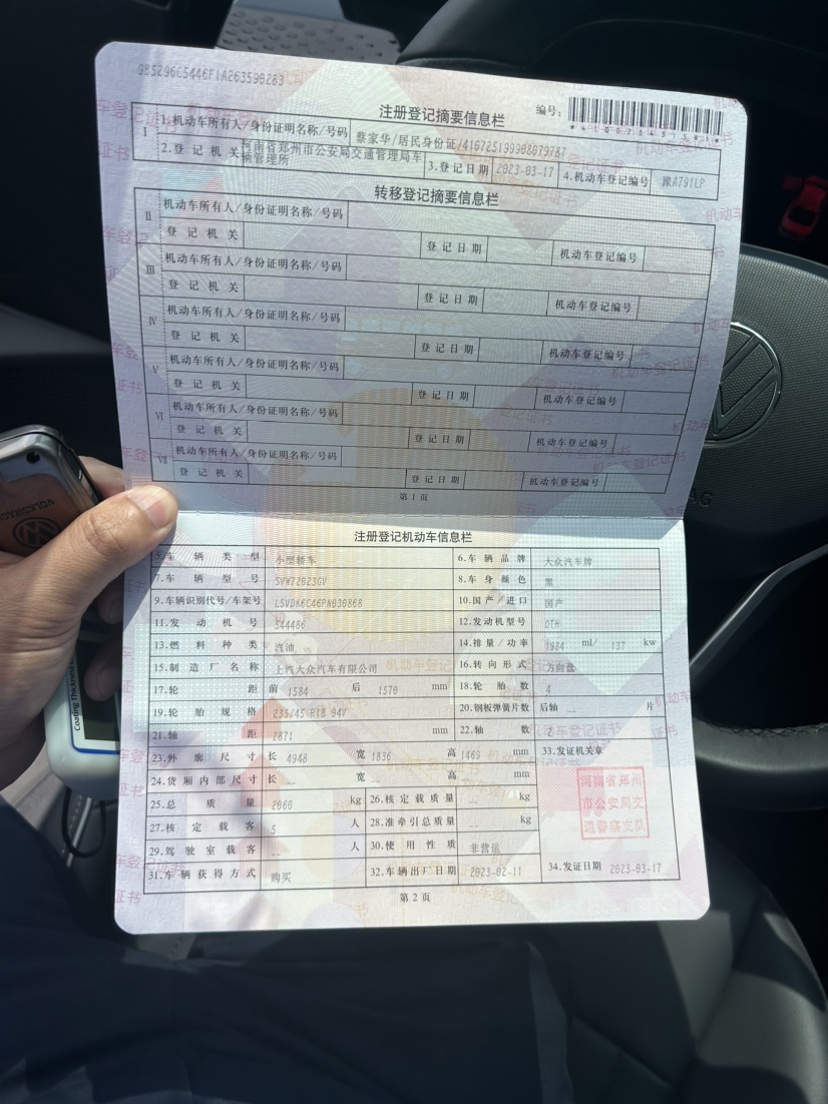 注册登记摘要信息栏
编号:
I
1.机动车所有人/身份证明名称/号码 蔡家华/居民身份证/
2.登记机关 河南省郑州市公安局交通管理局车辆管理所 3.登记日期 2023-03-17 4.机动车登记编号 豫A791LP
转移登记摘要信息栏
II 机动车所有人/身份证明名称/号码
登记机关 登记日期 机动车登记编号
III 机动车所有人/身份证明名称/号码
登记机关 登记日期 机动车登记编号
IV 机动车所有人/身份证明名称/号码
登记机关 登记日期 机动车登记编号
V 机动车所有人/身份证明名称/号码
登记机关 登记日期 机动车登记编号
VI 机动车所有人/身份证明名称/号码
登记机关 登记日期 机动车登记编号
VII 机动车所有人/身份证明名称/号码
登记机关 登记日期 机动车登记编号
第 1 页
注册登记机动车信息栏
5.车辆类型 小型轿车 6.车辆品牌 大众汽车牌
7.车辆型号 SVW72023GV 8.车身颜色 黑
9.车辆识别代号/车架号 LSVDK6C46PN030868 10.国产/进口 国产
11.发动机号 544486 12.发动机型号 DTH
13.燃料种类 汽油 14.排量/功率 1984 ml/ 137 kw
15.制造厂名称 上汽大众汽车有限公司 16.转向形式 方向盘
17.轮距 前 1584 后 1570 mm 18.轮胎数 4
19.轮胎规格 235/45 R18 94V 20.钢板弹簧片数 后轴 -- 片
21.轴距 2871 mm 22.轴数 2
23.外廓尺寸 长 4948 宽 1836 高 1469 mm 33.发证机关章
24.货厢内部尺寸 长 -- 宽 -- 高 -- mm
25.总质量 2060 kg 26.核定载质量 -- kg
27.核定载客 5 人 28.准牵引总质量 -- kg
29.驾驶室载客 -- 人 30.使用性质 非营运
31.车辆获得方式 购买 32.车辆出厂日期 2023-02-11 34.发证日期 2023-03-17
河南省郑州
市公安局交
通警察支队
第 2 页
VOLKSWAGEN
Coating Thickness